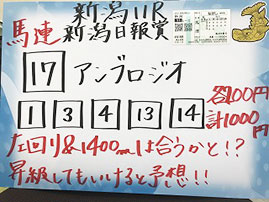 新潟11R
馬連 新潟日報賞
17 アンブロジオ
1 3 4 13 14 各100円
計1000円
左回り&1400mは合うかと!?
昇級してもいけると予想!!